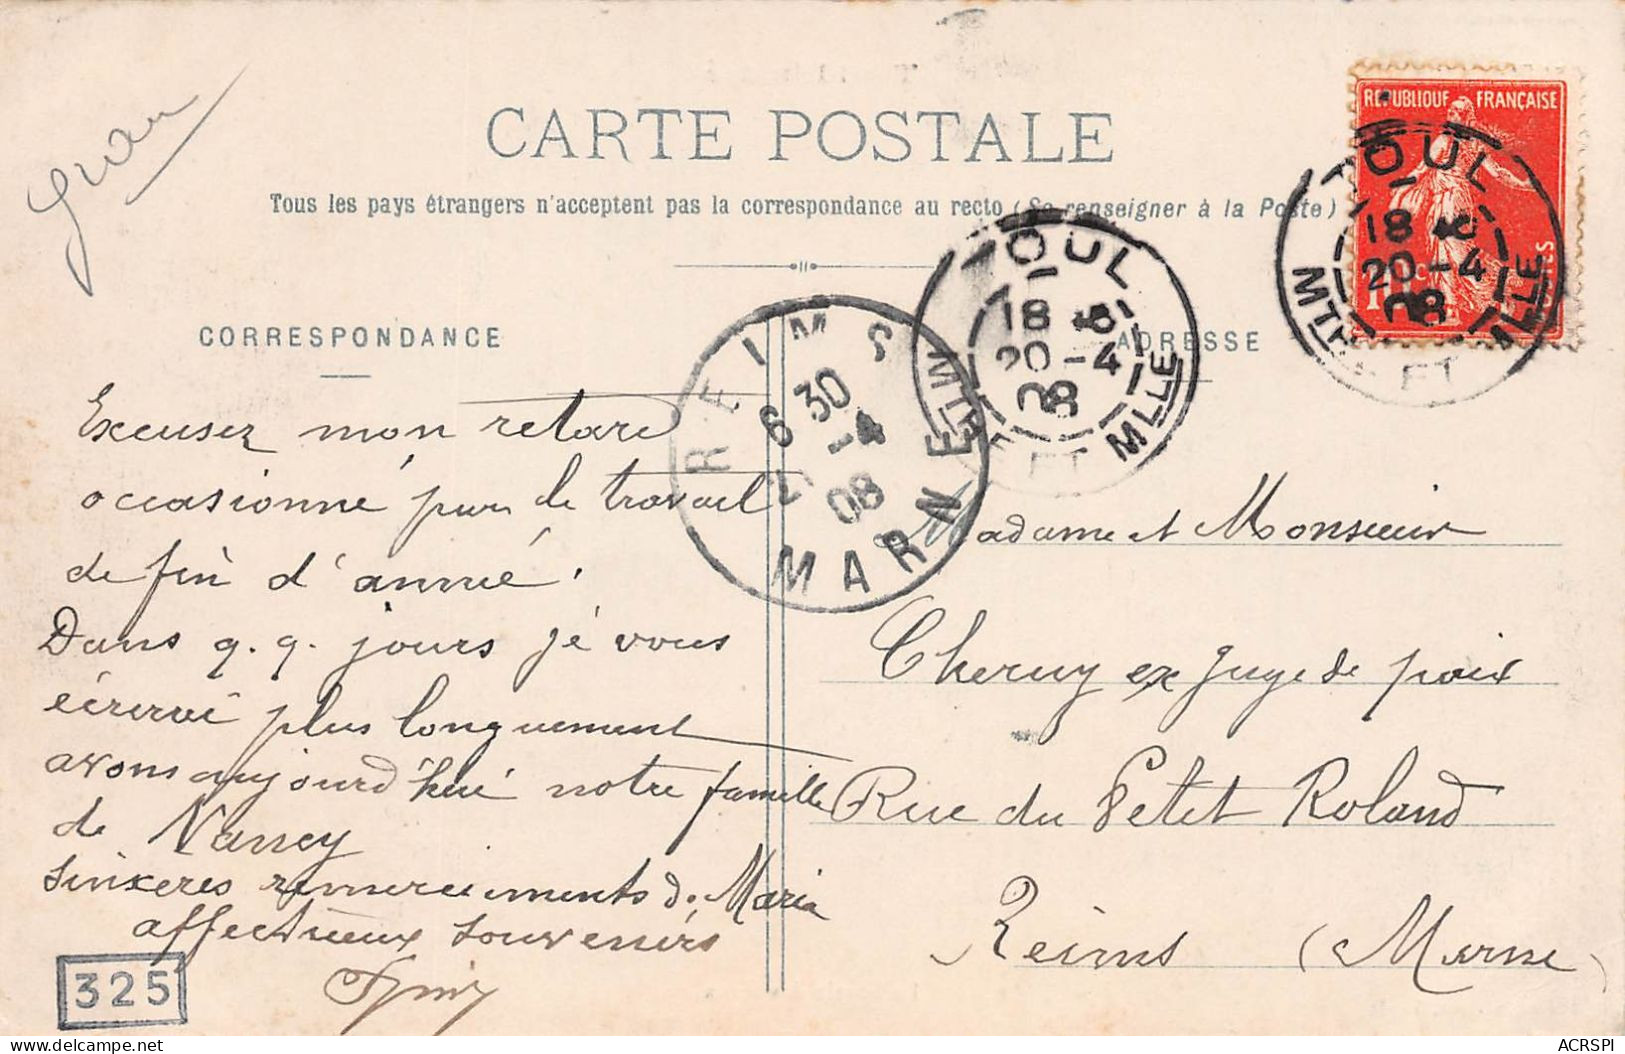 CARTE POSTALE
Tous les pays étrangers n'acceptent pas la correspondance au recto (Se renseigner à la Poste)
REPUBLIQUE FRANÇAISE
TOUL
18
20-4
08
MTHE ET MLLE
TOUL
18
20-4
08
MTHE ET MLLE
REIMS
6 30
-4
08
MARNE
CORRESPONDANCE
ADRESSE
Excusez mon retard
occasionné par le travail
de fin d'année.
Dans q.q. jours je vous
écrirai plus longuement
avons aujourd'hui notre famille
de Nancy
Sincères remerciements de Maria
affectueux souvenirs
Madame et Monsieur
Cheruy ex juge de paix
Rue du Petit Roland
Reims (Marne)
325
ACRSPI